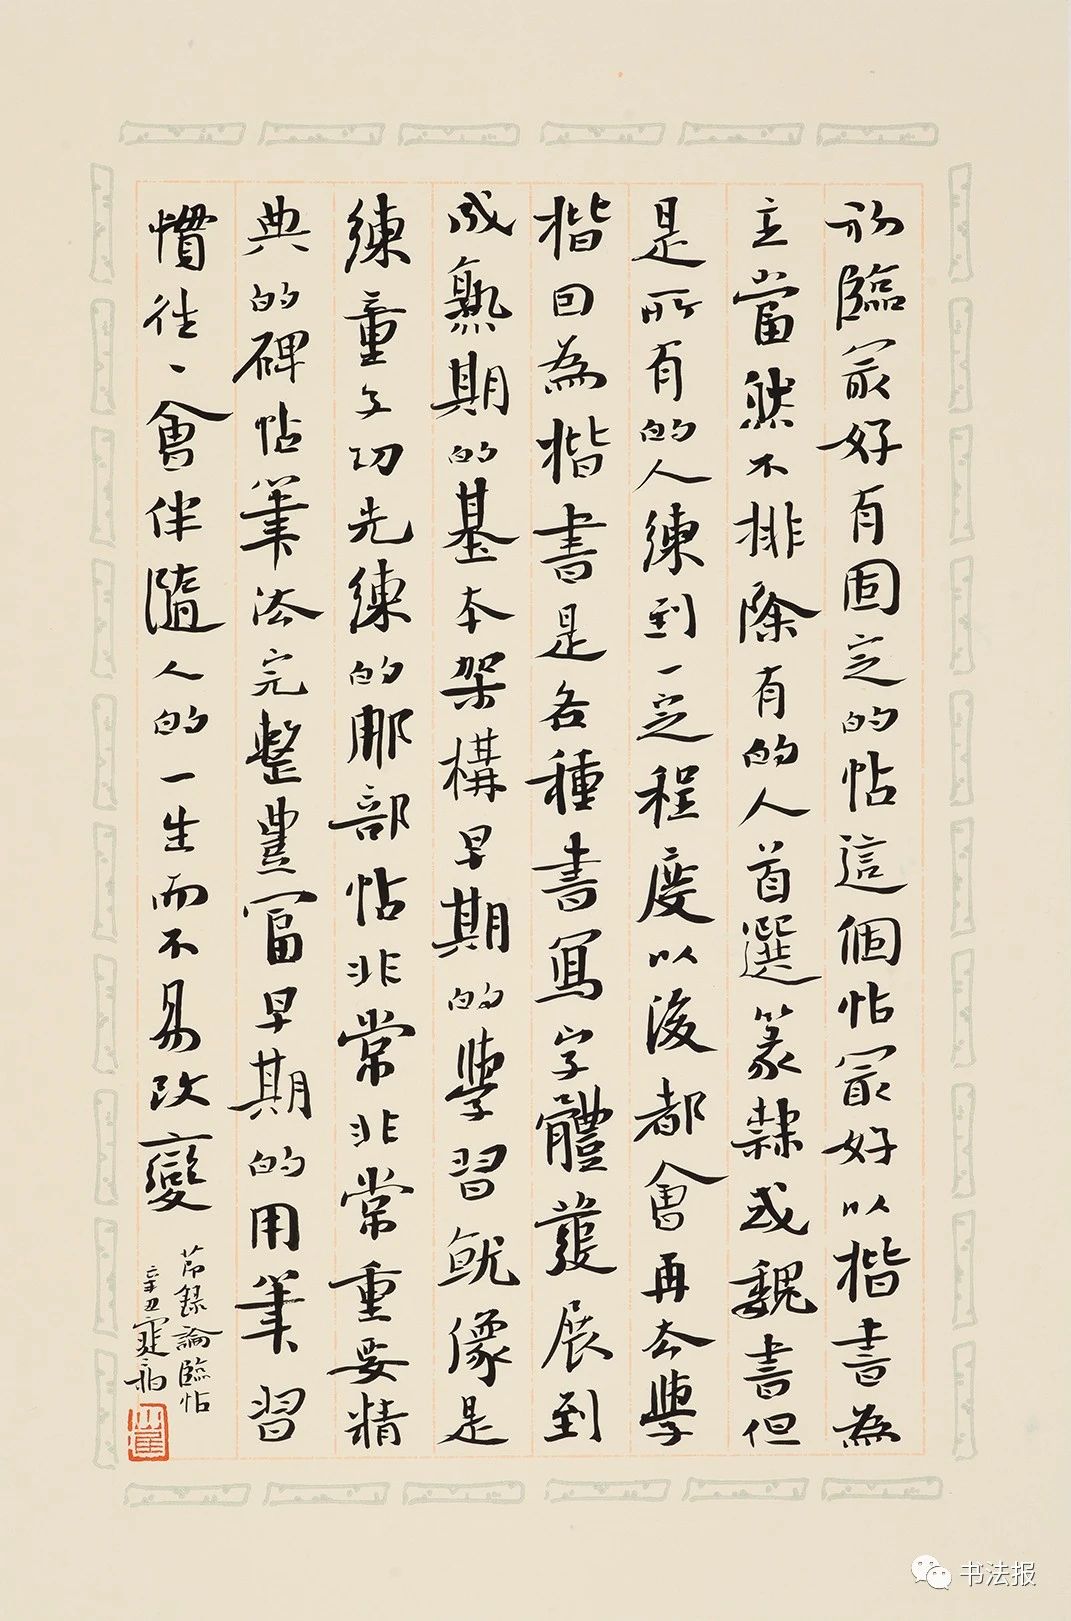 初臨冣好有固定的帖這個帖冣好以楷書為
主當然不排除有的人首選篆隸或魏書但
是所有的人練到一定程度以後都會再去學
楷回為楷書是各種書寫字體發展到
成熟期的基本架構早期的學習就像是
練童子功先練的那部帖非常非常重要精
典的碑帖筆法完整豐富早期的用筆習
慣往丶會伴隨人的一生而不易改變
節錄論臨帖
辛丑寔
书法报